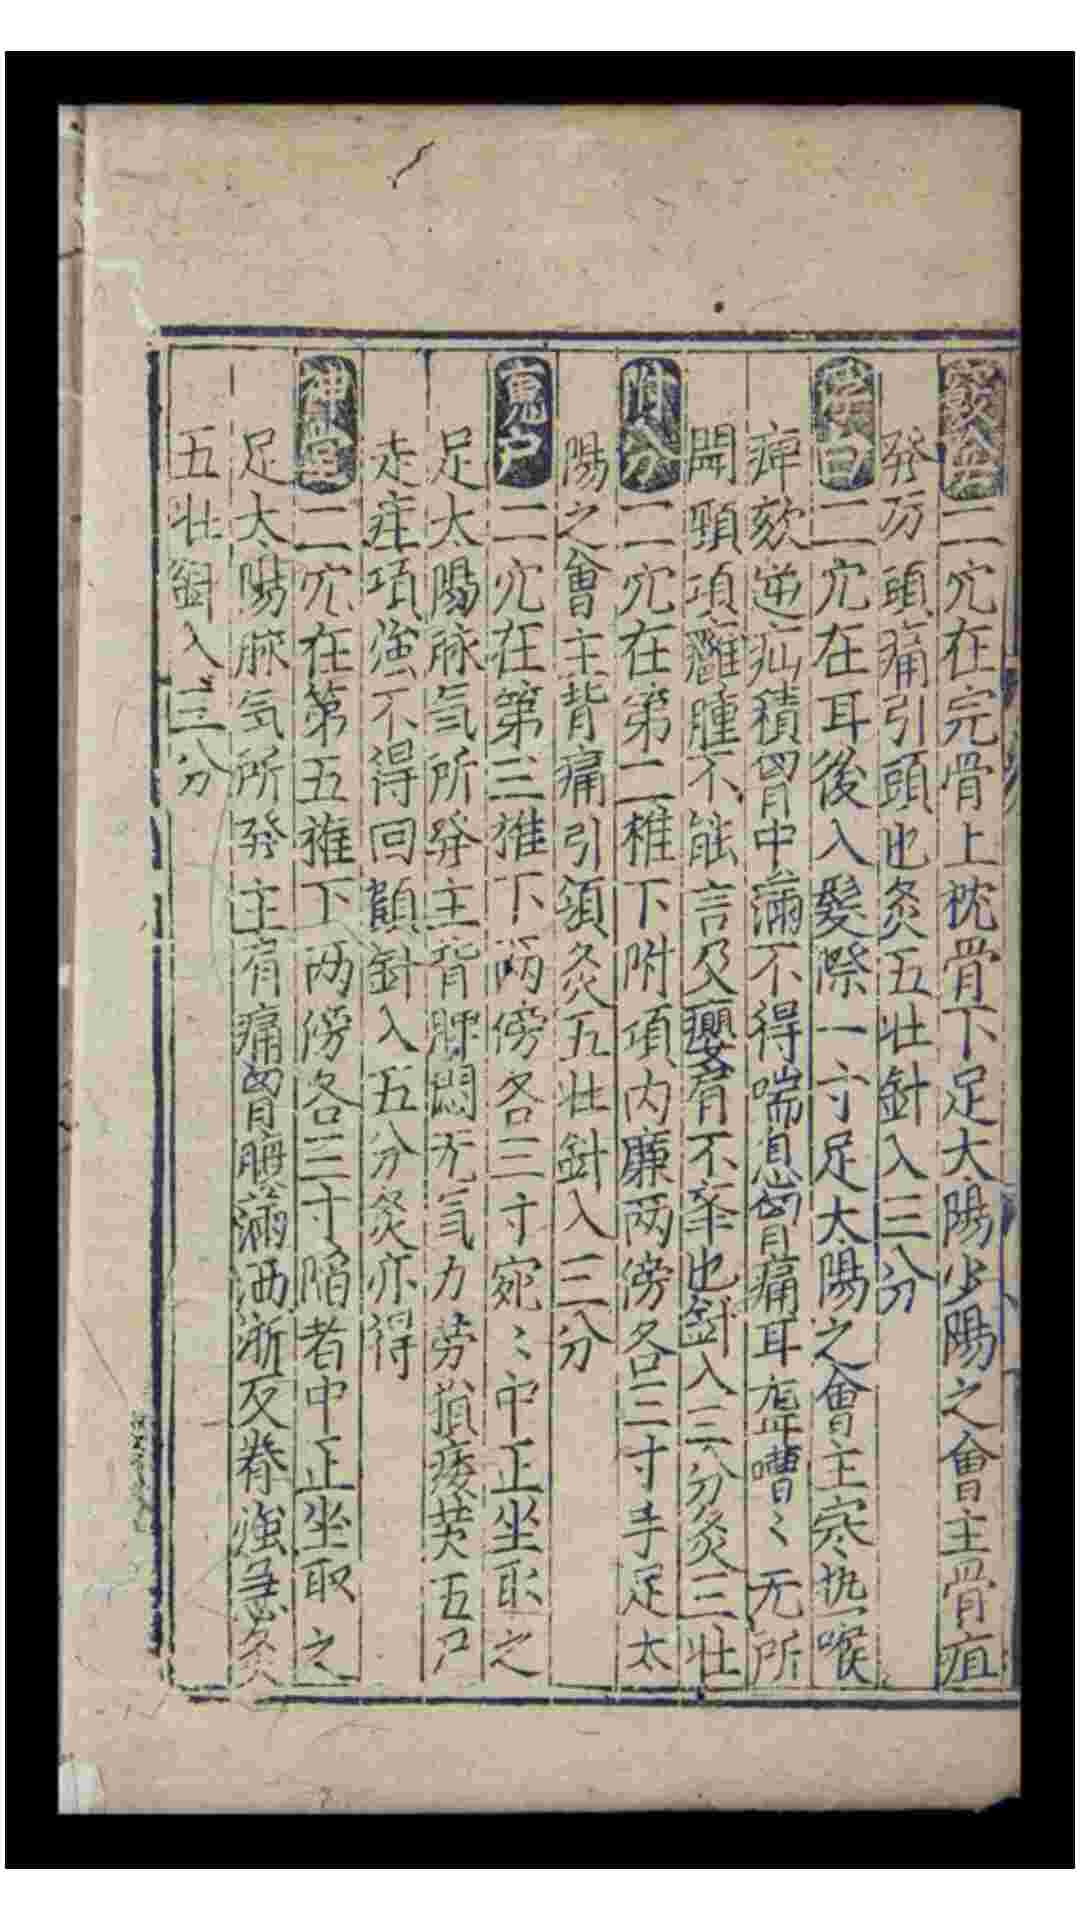 竅陰二穴在完骨上枕骨下足大陽少陽之會主骨疽
發厉頭痛引頭也灸五壯針入三分
浮白二穴在耳後入髮際一寸足太陽之會主寒热喉
痺欬逆疝積胷中滿不得喘息胷痛耳聾嘈〻无所
聞頸項癰腫不能言及癭肩不舉也針入三分灸三壮
附分二穴在第二椎下附項内廉两傍各三寸手足太
陽之會主背痛引須灸五壮針入三分
魂户二穴在第三椎下两傍各三寸宛〻中正坐取之
足太陽脉氣所發主背胛悶无氣力劳損痿黄五尸
走疰項強不得回顧針入五分灸亦得
神堂二穴在第五椎下两傍各三寸陷者中正坐取之
足太陽脉氣所發主肩痛胷腹滿洒淅反脊強急灸
五壮針入三分